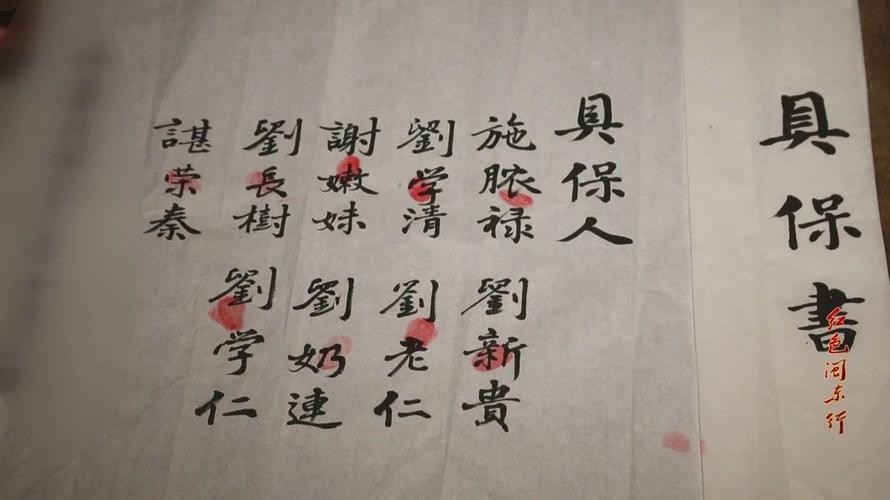 具保書
红色闽东行
具保人
施脓禄
劉学清
謝嫩妹
劉長樹
諶荣秦
劉新貴
劉老仁
劉奶連
劉学仁